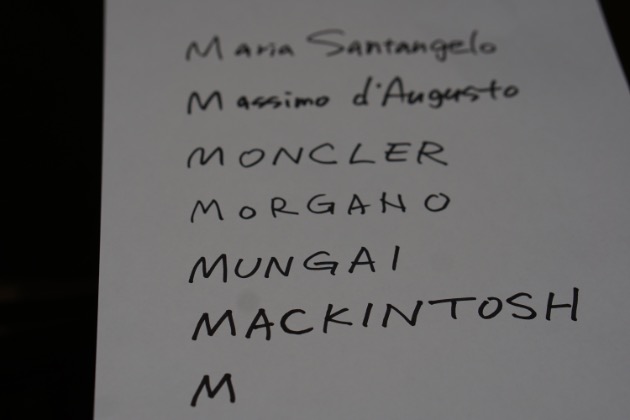 Maria Santangelo
Massimo d'Augusto
MONCLER
MoRGANO
MUNGAI
MACKINTOSH
M